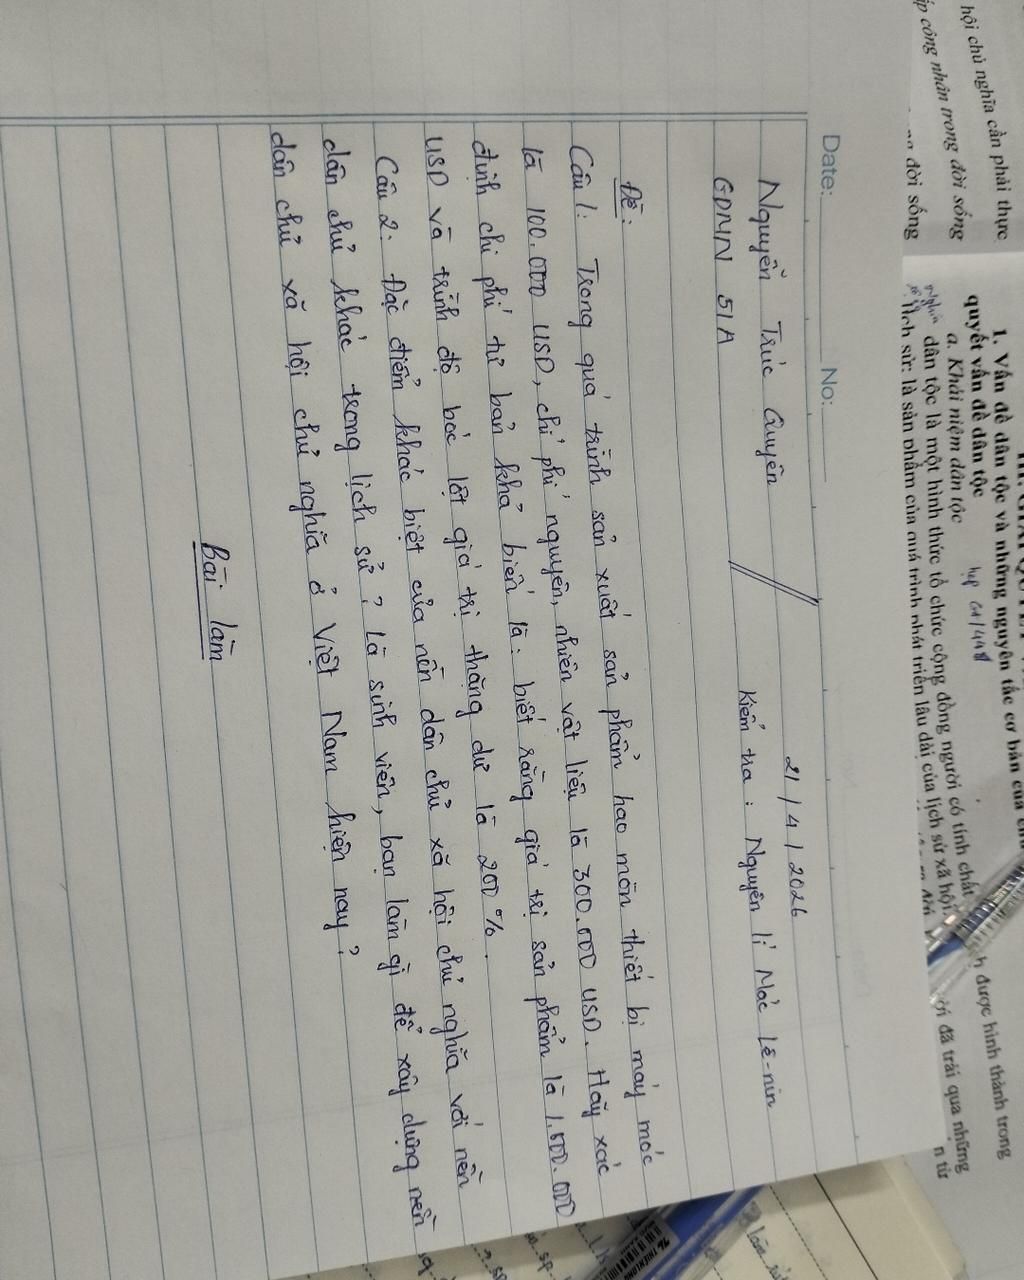 hội chủ nghĩa cần phải thực
ấp công nhân trong đời sống
đời sống
1. Vấn đề dân tộc và những nguyên tắc cơ bản của
quyết vấn đề dân tộc
a. Khái niệm dân tộc
dân tộc là một hình thức tổ chức cộng đồng người có tính chất
lịch sử: là sản phẩm của quá trình phát triển lâu dài của lịch sử xã hội
được hình thành trong
đã trải qua những
Date: No:
21/4/2026
Nguyễn Trúc Quyên Kiểm tra: Nguyên lí Mác Lê-nin
GDMN 51A
Đề:
Câu 1: Trong quá trình sản xuất sản phẩm hao mòn thiết bị máy móc
là 100.000 USD, chi phí nguyên, nhiên vật liệu là 300.000 USD. Hãy xác
định chi phí tư bản khả biến là: biết rằng giá trị sản phẩm là 1.600.000
USD và trình độ bóc lột giá trị thặng dư là 200%.
Câu 2: Đặc điểm khác biệt của nền dân chủ xã hội chủ nghĩa với nền
dân chủ khác trong lịch sử? Là sinh viên, bạn làm gì để xây dựng nền
dân chủ xã hội chủ nghĩa ở Việt Nam hiện nay?
Bài làm